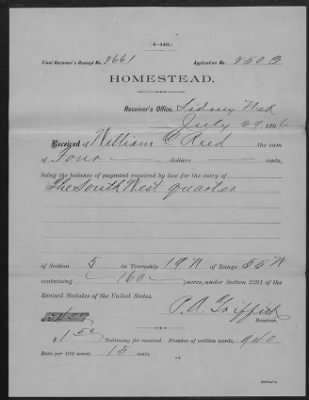 (4-140.)
Final Receiver's Receipt No. 2661 Application No. 2503
HOMESTEAD.
Receiver's Office, Sidney Neb
July 29, 188
Received of William C Reed the sum
of Four dollars cents,
being the balance of payment required by law for the entry of
The South West quarter
of Section 5 in Township 19 N of Range 55 W
containing 160 acres, under Section 2291 of the
Revised Statutes of the United States.
Receiver.
$ 1.50 Testimony fee received. Number of written words, 940
Rate per 100 words 15 cents.